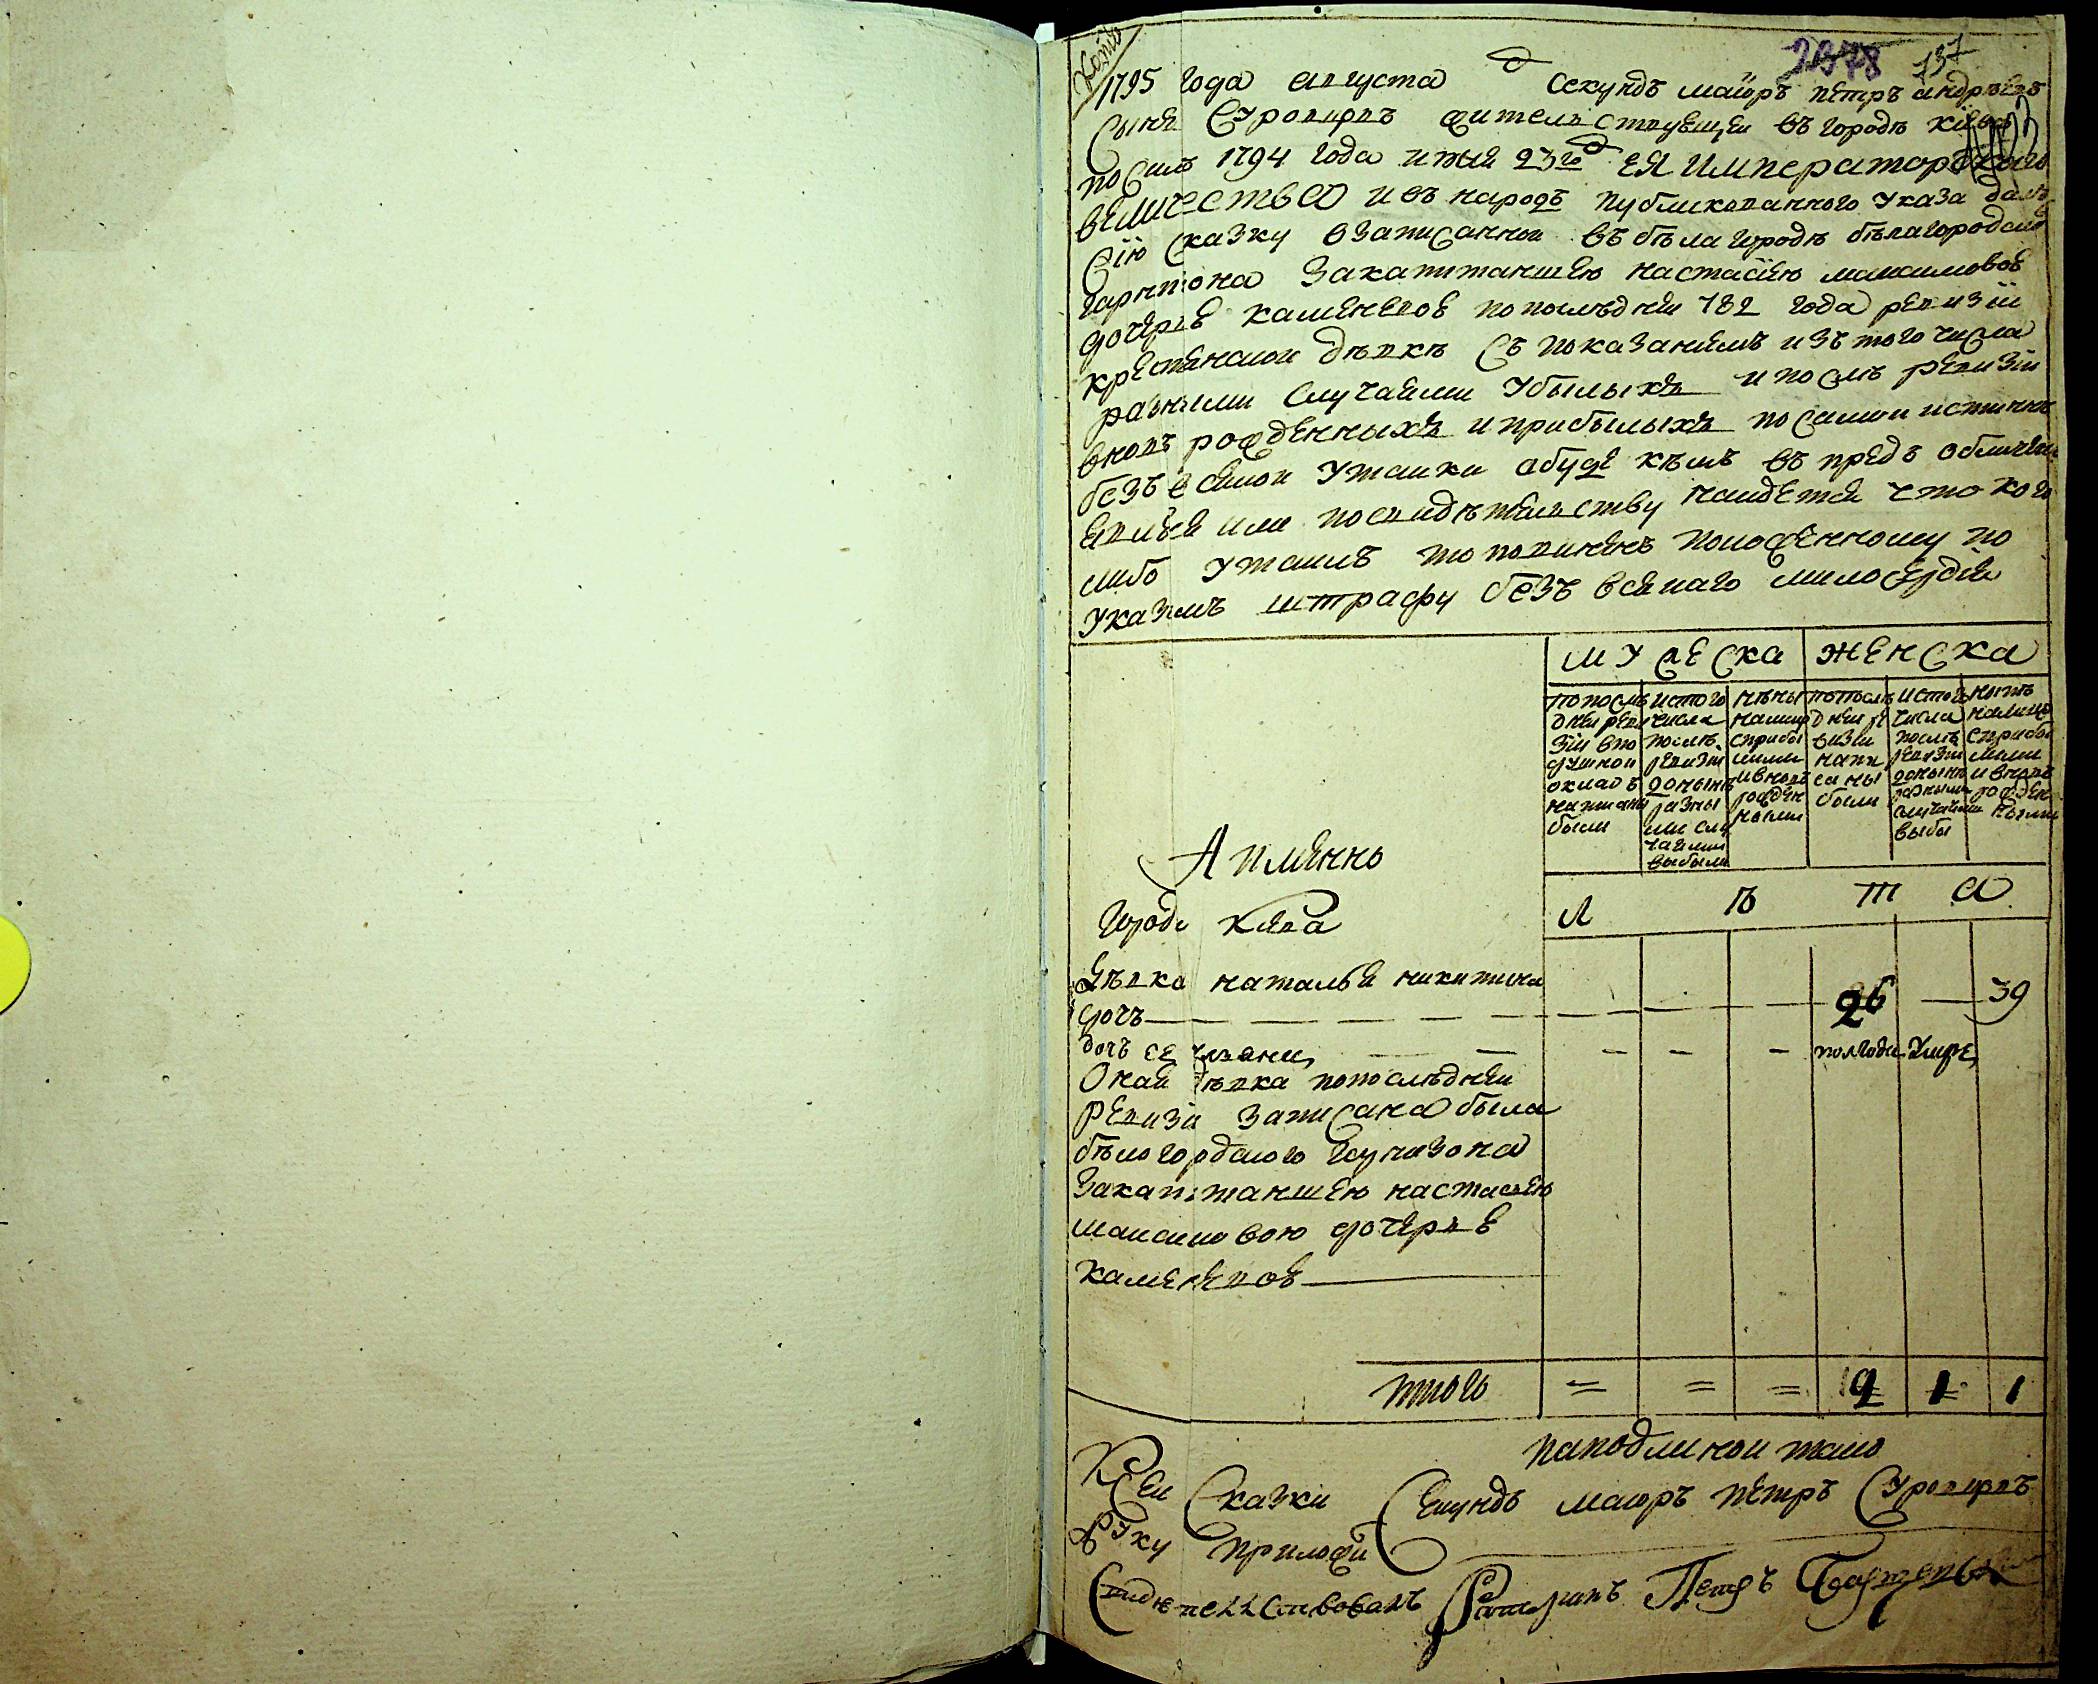 Копія
2978 737
1795 года августа Секундъ маіоръ петръ андрѣевъ
Сынъ Суровцовъ жителствующеи въ городѣ кіевѣ
по силѣ 1794 года июня 23го ЕЯ Императорскаго
ВЕЛИЧЕСТВА и въ народъ публикованного указа далъ
Сїю Сказку о записанной въ бѣлагородѣ бѣлагородского
гарнизона Закапитаншею настасїею максимовое
дочерье каменевое по последнеи 782 года ревизіи
крестьянской дѣвкѣ Съ показаниемъ изъ того числа
разными Случаями убылыхъ и послѣ ревизіи
вновь рожденныхъ и прибылыхъ по самой истиннѣ
безъ всякой утайки а буде кѣмъ въ предь обличенъ
явлься или по свидѣтельству найдется что кого
либо утаилъ то повиненъ положенному по
указамъ штрафу безъ всякаго милосердія
МУЖЕСКА ЖЕНСКА
по послѣдней ревизіи в подушной окладъ написаны были
ис того числа послѣ ревизіи донынѣ разными случаями выбыли
нынѣ на лицо с прибылыми и вновь рожденными
по последней ревизіи написаны были
ис того числа послѣ ревизіи донынѣ разными случаями выбы
нынѣ на лицо с прибылыми и вновь рожденными
А имянно
Л Ѣ Т А
Города Кіева
Дѣвка наталья никитина
дочь — 26 — 39
дочь ее — — — — — полгода умре
Оная дѣвка по последнеи
ревизіи Записана была
бѣлогородского Гарнизона
Закапитаншею настасею
максимовою дочерье
каменевое
итого = = = 2 1 1
На подлиной тако
К Сеи Сказки Секундъ маіоръ петръ Суровцовъ
руку приложи
Свидѣтелствовалъ Ратманъ Петръ